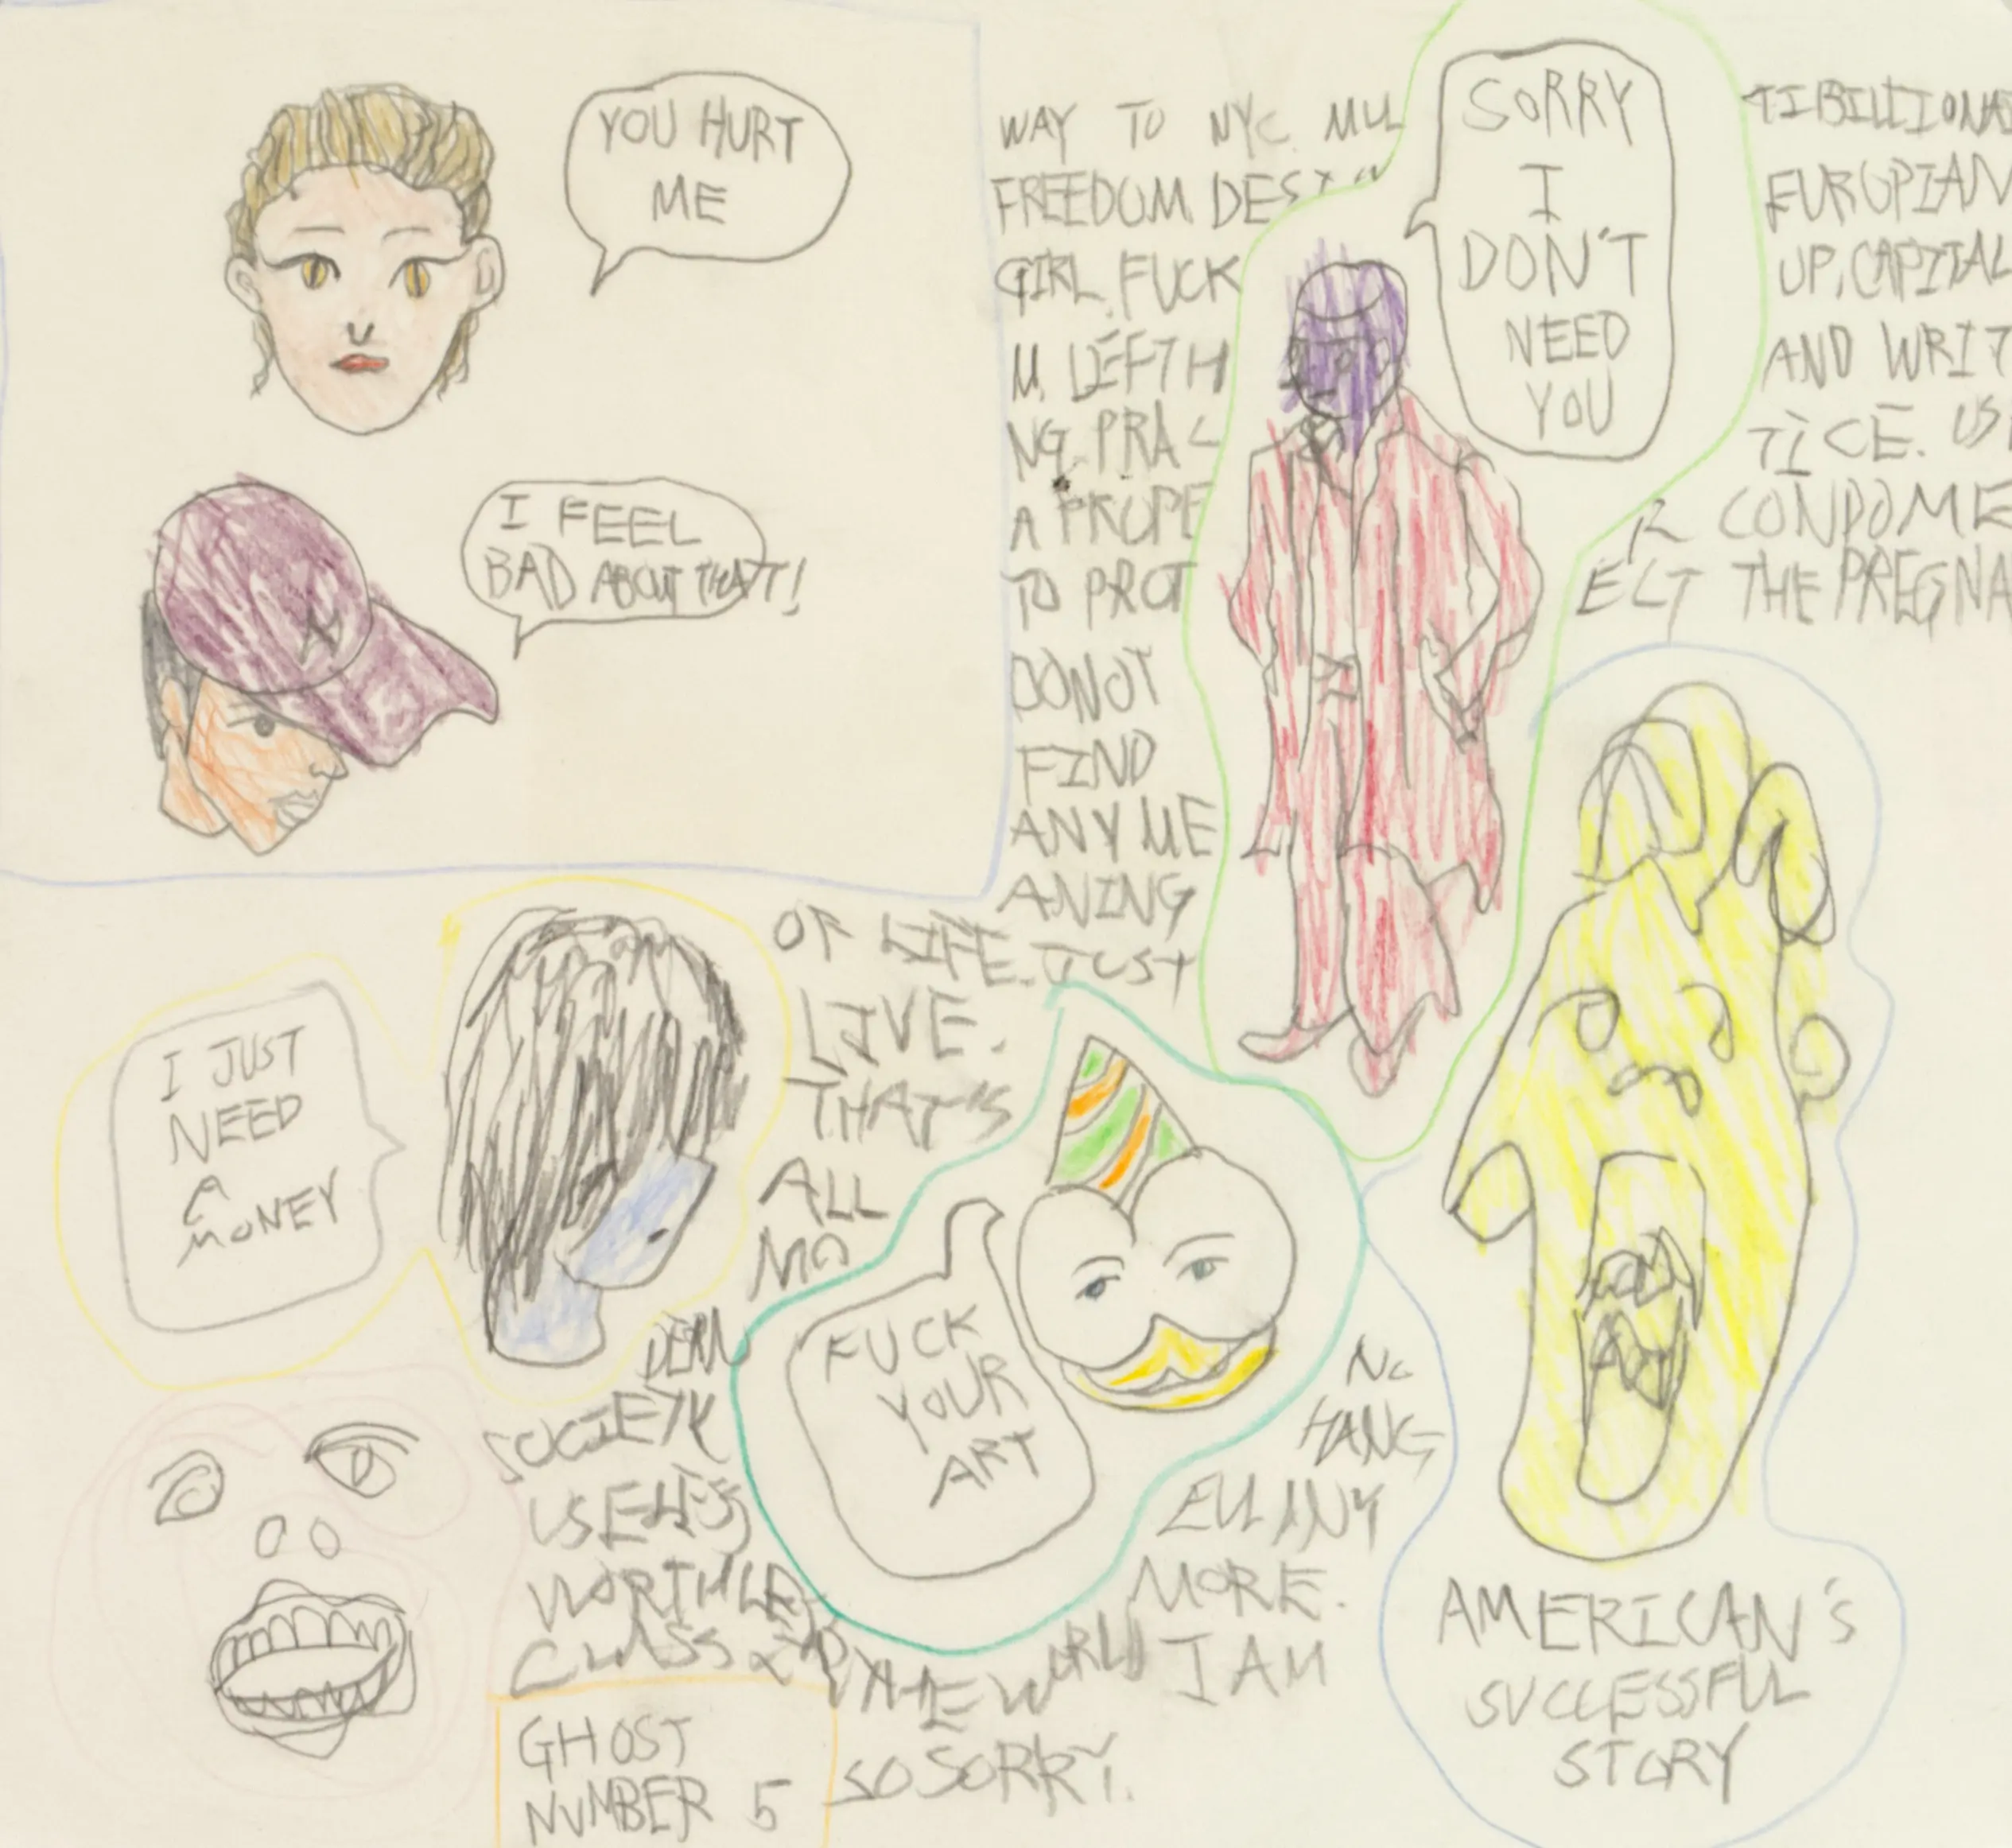 YOU HURT
ME
I FEEL
BAD ABOUT THATT!
WAY TO NYC. MUL TIBILLIONA
FREEDOM. DES EUROPIAN
GIRL. FUCK UP, CAPITAL
M. LEFTH AND WRIT
NG. PRAC TICE. US
A PROPE R CONDOME
TO PROT ECT THE PREGNA
DONOT
FIND
ANY ME
ANING
OF LIFE. JUST
LIVE.
THAT'S
ALL
MO
DERN
SOCIETY
USELESS
WORTHLE
CLASS
THE WORLD
SO SORRY.
NO
HANG
EUL ANY
MORE.
I AM
SORRY
I
DON'T
NEED
YOU
I JUST
NEED
A
MONEY
FUCK
YOUR
ART
AMERICAN'S
SUCCESSFUL
STORY
GHOST
NUMBER 5